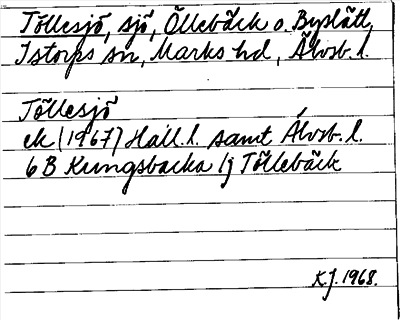 Töllesjö, sjö, Öllebäck o. Byslätt,
Istorps sn, Marks hd, Älvsb. l.
Töllesjö
ek (1967) Hall. l. samt Älvsb. l.
6 B Kungsbacka 1j Töllebäck
K.J. 1968.